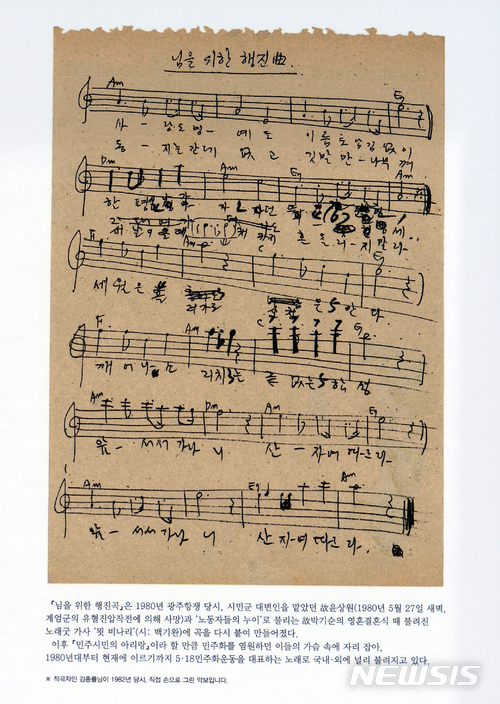 님을 위한 행진曲.
Am E7
사- 랑도 명- 예도 이름도 남김 없이
동- 지는 간데 없고 깃발 만- 나부껴
Dm Am E7 Am
한 평생 나 맹세,
흔들리지 말라.
F Am C E7
세월은 은 안다
F Am C E7
깨어나 외치는 끝 없는 함성
Am Dm Am E7
앞- 서서 가나 니 산- 자여 따르라.
Am E7 Am
앞- 서서 가나 니 산 자여 따르라.
『님을 위한 행진곡』은 1980년 광주항쟁 당시, 시민군 대변인을 맡았던 故윤상원(1980년 5월 27일 새벽,
계엄군의 유혈진압작전에 의해 사망)과 '노동자들의 누이'로 불리는 故박기순의 영혼결혼식 때 불려진
노래굿 가사 '묏 비나리'(시: 백기완)에 곡을 다시 붙여 만들어졌다.
이후 『민주시민의 아리랑』이라 할 만큼 민주화를 염원하던 이들의 가슴 속에 자리 잡아,
1980년대부터 현재에 이르기까지 5·18민주화운동을 대표하는 노래로 국내·외에 널리 불려지고 있다.
※ 작곡자인 김종률님이 1982년 당시, 직접 손으로 그린 악보입니다.
NEWSIS